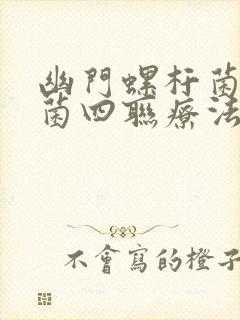 幽門螺杆菌
菌四聯療法
不會寫的橙子